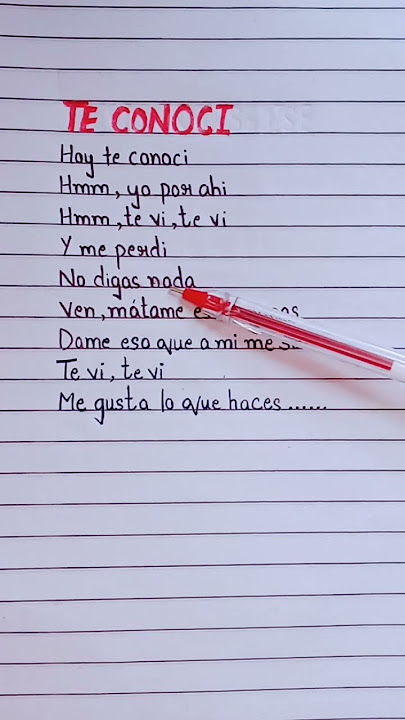 TE CONOCI
Hoy te conoci
Hmm, yo por ahi
Hmm, te vi, te vi
Y me perdi
No digas nada
Ven, mátame
Dame eso que a mi me
Te vi, te vi
Me gusta lo que haces......